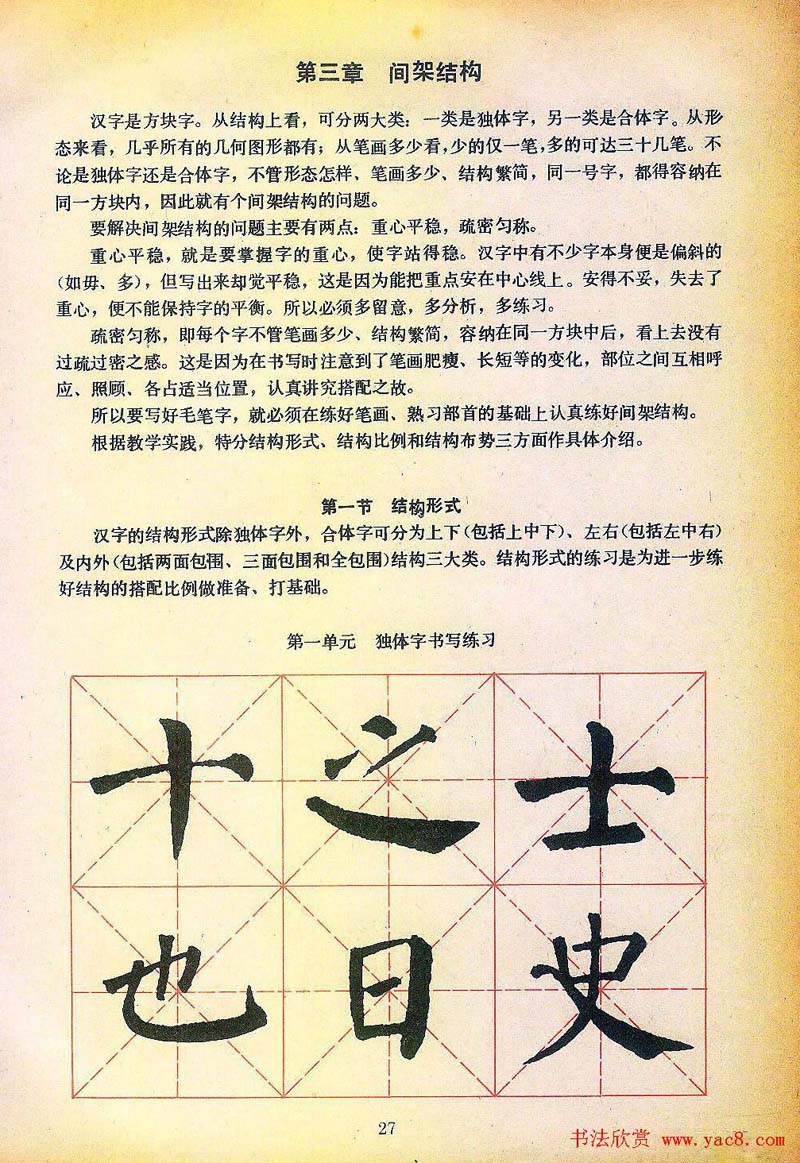 第三章 间架结构
汉字是方块字。从结构上看，可分两大类：一类是独体字，另一类是合体字。从形
态来看，几乎所有的几何图形都有；从笔画多少看，少的仅一笔，多的可达三十几笔。不
论是独体字还是合体字，不管形态怎样、笔画多少、结构繁简，同一号字，都得容纳在
同一方块内，因此就有个间架结构的问题。
要解决间架结构的问题主要有两点：重心平稳，疏密匀称。
重心平稳，就是要掌握字的重心，使字站得稳。汉字中有不少字本身便是偏斜的
（如毋、多），但写出来却觉平稳，这是因为能把重点安在中心线上。安得不妥，失去了
重心，便不能保持字的平衡。所以必须多留意，多分析，多练习。
疏密匀称，即每个字不管笔画多少、结构繁简，容纳在同一方块中后，看上去没有
过疏过密之感。这是因为在书写时注意到了笔画肥瘦、长短等的变化，部位之间互相呼
应、照顾、各占适当位置，认真讲究搭配之故。
所以要写好毛笔字，就必须在练好笔画、熟习部首的基础上认真练好间架结构。
根据教学实践，特分结构形式、结构比例和结构布势三方面作具体介绍。
第一节 结构形式
汉字的结构形式除独体字外，合体字可分为上下（包括上中下）、左右（包括左中右）
及内外（包括两面包围、三面包围和全包围）结构三大类。结构形式的练习是为进一步练
好结构的搭配比例做准备、打基础。
第一单元 独体字书写练习
十 之 士
也 日 史
27
书法欣赏 www.yac8.com